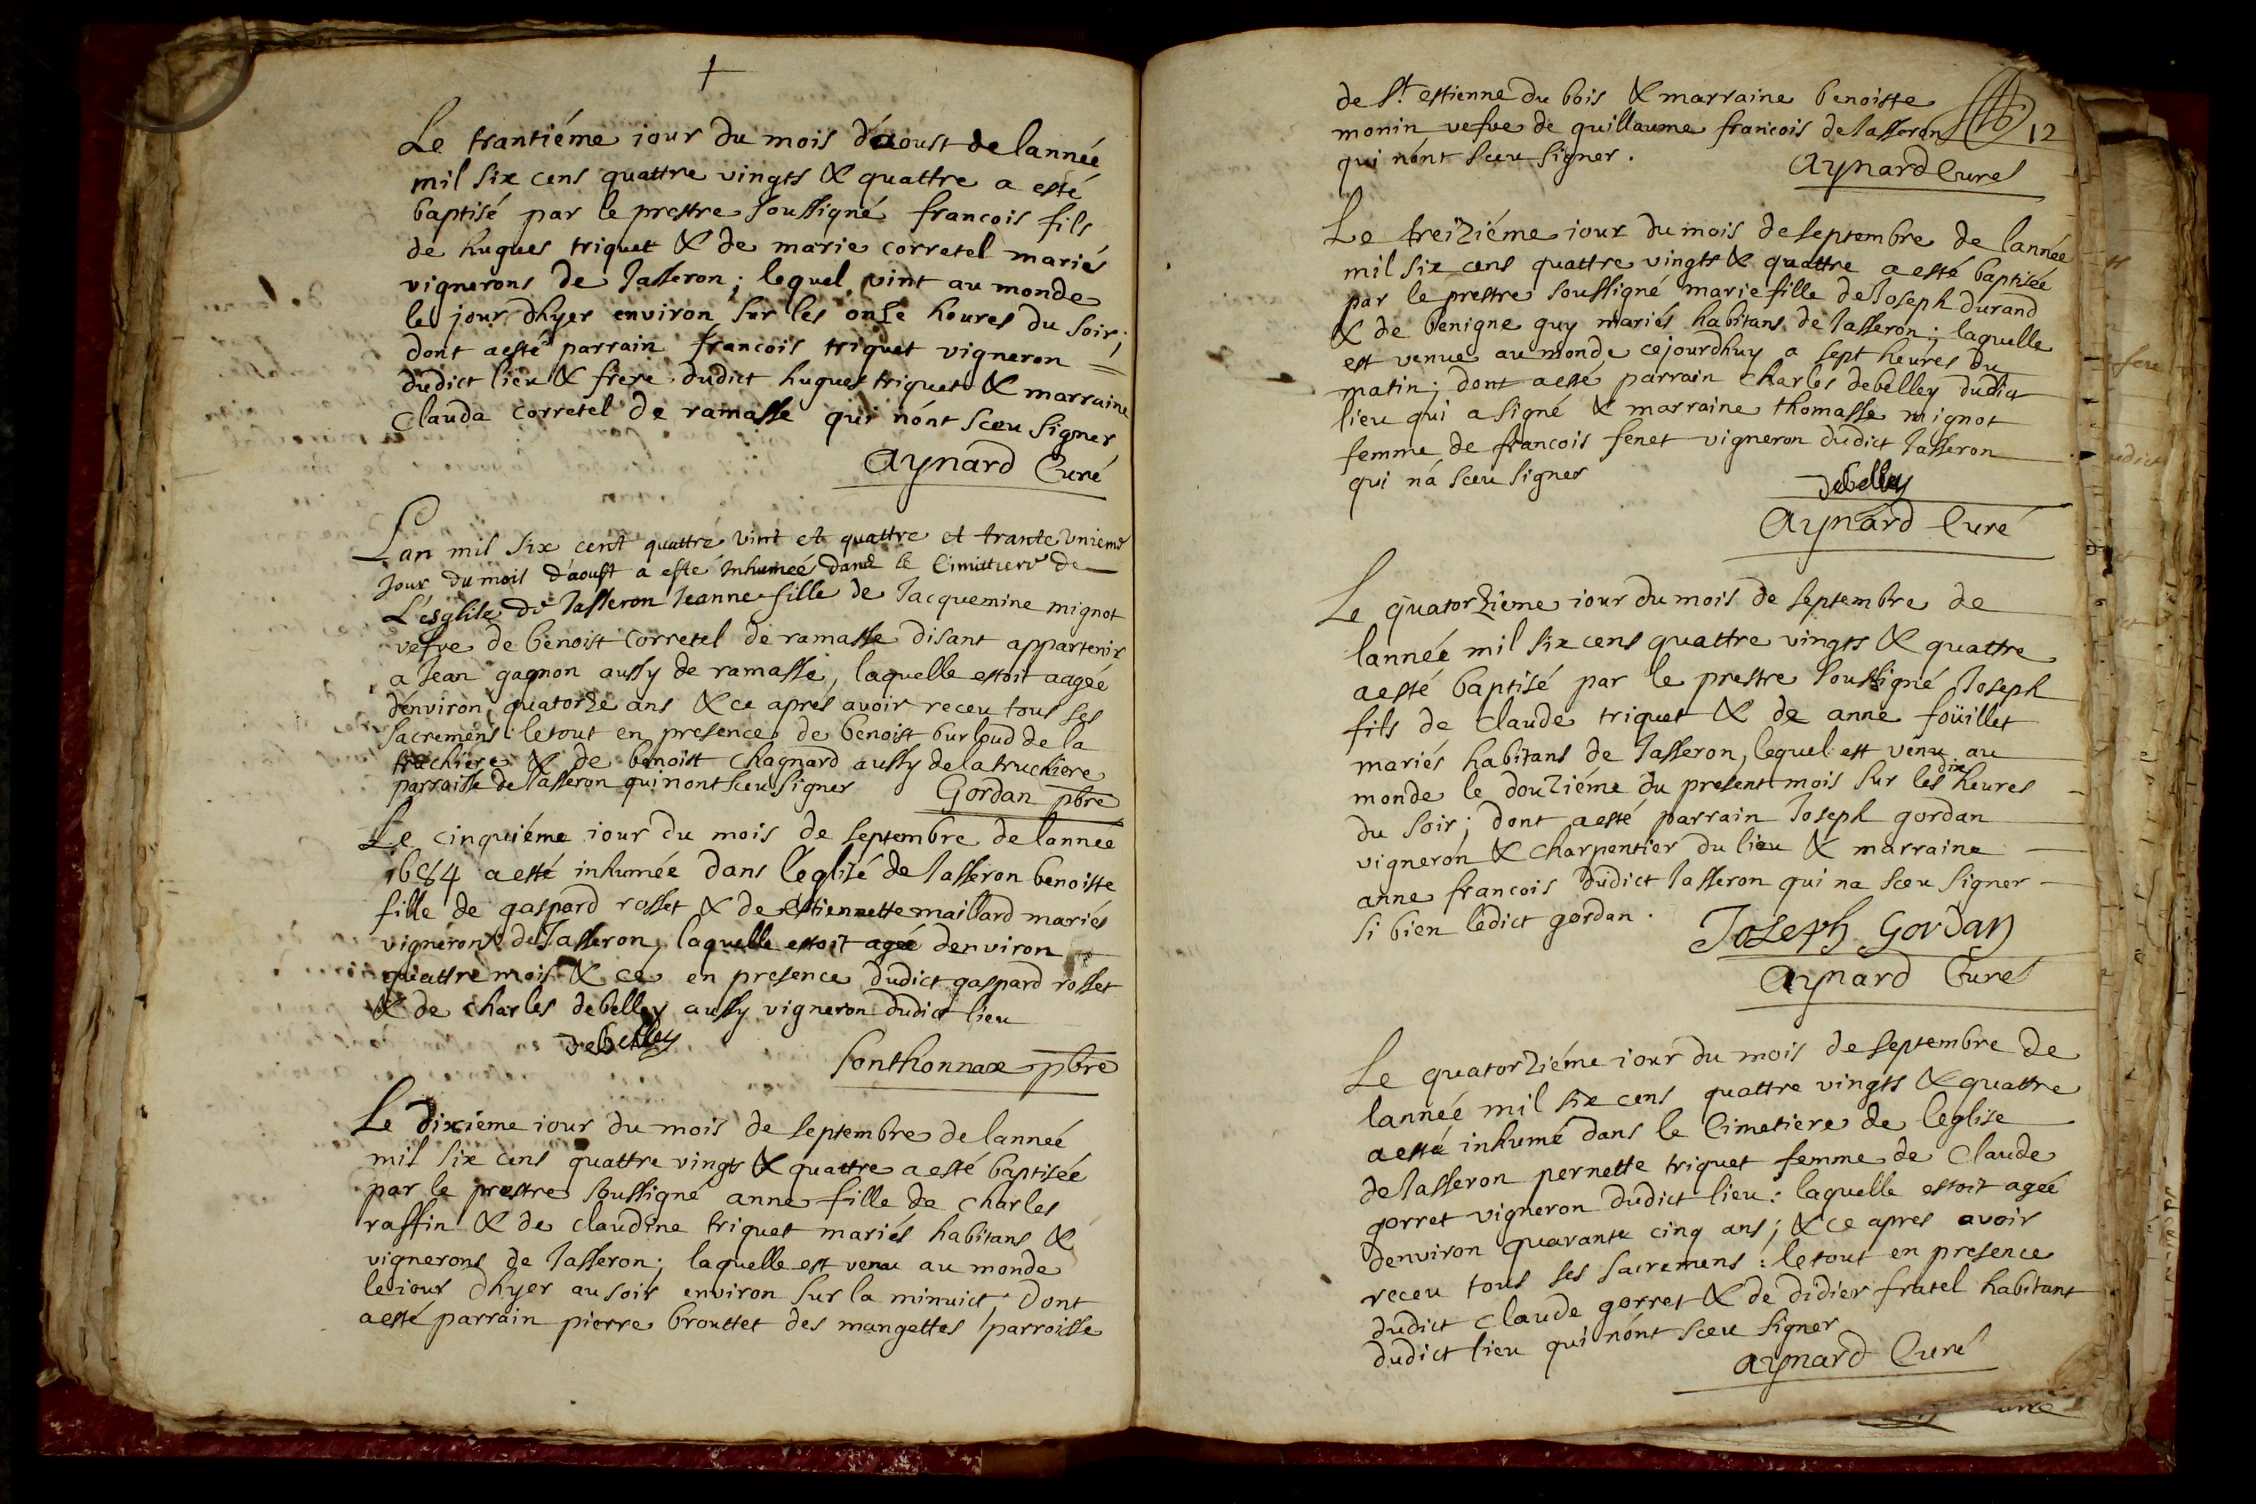 Le trantiéme iour du mois d'aoust de lannée
mil six cens quattre vingts & quattre a esté
baptisé par le prestre soussigné francois fils
de hugues triquet & de marie corretel mariés
vignerons de Jasseron; lequel vint au monde
le jour dhyer environ sur les onze heures du soir;
dont a esté parrain francois triquet vigneron
dudict lieu & frere dudict hugues triquet & marraine
Clauda corretel de ramasse qui nónt sceu signer
Aynard Curé
Lan mil six cent quattre vint et quattre et trante vnieme
Jour du mois d'aoust a esté Inhumeé dans le Cimittiere de
L'esglise de Jasseron Jeanne fille de Jacquemine mignot
vefve de benoist Corretel de ramasse disant appartenir
a Jean gagnon aussy de ramasse, laquelle estoit aagée
d'environ quatorze ans & ce aprés avoir receu tous ses
sacremens le tout en presence de benoist burloud de la
truchiere & de benoist Chagnard aussy de la truchiere
parroisse de Jasseron qui nont sceu signer Gordan pbre
Le cinquiéme iour du mois de septembre de lannée
1684 a esté inhumée dans léglise de Jasseron benoiste
fille de gaspard rosset & de Estiennette maillard mariés
vignerons de Jasseron, laquelle estoit ageé denviron
quattre mois & ce en presence dudict gaspard rosset
& de charles debelley aussy vigneron dudict lieu
debelley
Sonthonnax pbre
Le dixiéme iour du mois de septembre de lanneé
mil six cens quattre vingts & quattre a esté baptisée
par le prestre soussigné anne fille de Charles
raffin & de claudine triquet mariés habitans &
vignerons de Jasseron; laquelle est venue au monde
le iour dhyer au soir environ sur la minuict, dont
a esté parrain pierre brouttet des mangettes parroisse
de St estienne du bois & marraine benoiste
monin vefve de guillaume francois de Jasseron 12
qui nónt sceu signer.
Aynard Curé
Le treiziéme iour du mois de septembre de lannée
mil six cens quattre vingts & quattre a esté baptisée
par le prestre soussigné marie fille de Joseph durand
& de benigne guy mariés habitans de Jasseron; laquelle
est venue au monde cejourdhuy a sept heures du
matin; dont a esté parrain Charles debelley dudict
lieu qui a signé & marraine thomasse mignot
femme de francois fenet vigneron dudict Jasseron
qui ná sceu signer
debelley
Aynard Curé
Le quatorziéme iour du mois de septembre de
lannée mil six cens quattre vingts & quattre
a esté baptisé par le prestre soussigné Joseph
fils de Claude triquet & de anne foüillet
mariés habitans de Jasseron, lequel est venu au
monde le douziéme du present mois sur les dix heures
du soir; dont a esté parrain Joseph gordan
vigneron & Charpentier du lieu & marraine
anne francois dudict Jasseron qui na sceu signer
si bien ledict gordan.
Joseph Gordan
Aynard Curé
Le quatorziéme iour du mois de septembre de
lannée mil six cens quattre vingts & quattre
a esté inhumé dans le Cimetiere de leglise
de Jasseron pernette triquet femme de Claude
gorret vigneron dudict lieu: laquelle estoit ageé
denviron quarante cinq ans; & ce apres avoir
receu tous ses sacremens: le tout en presence
dudict Claude gorret & de didier fratel habitant
dudict lieu qui nónt sceu signer
Aynard Curé